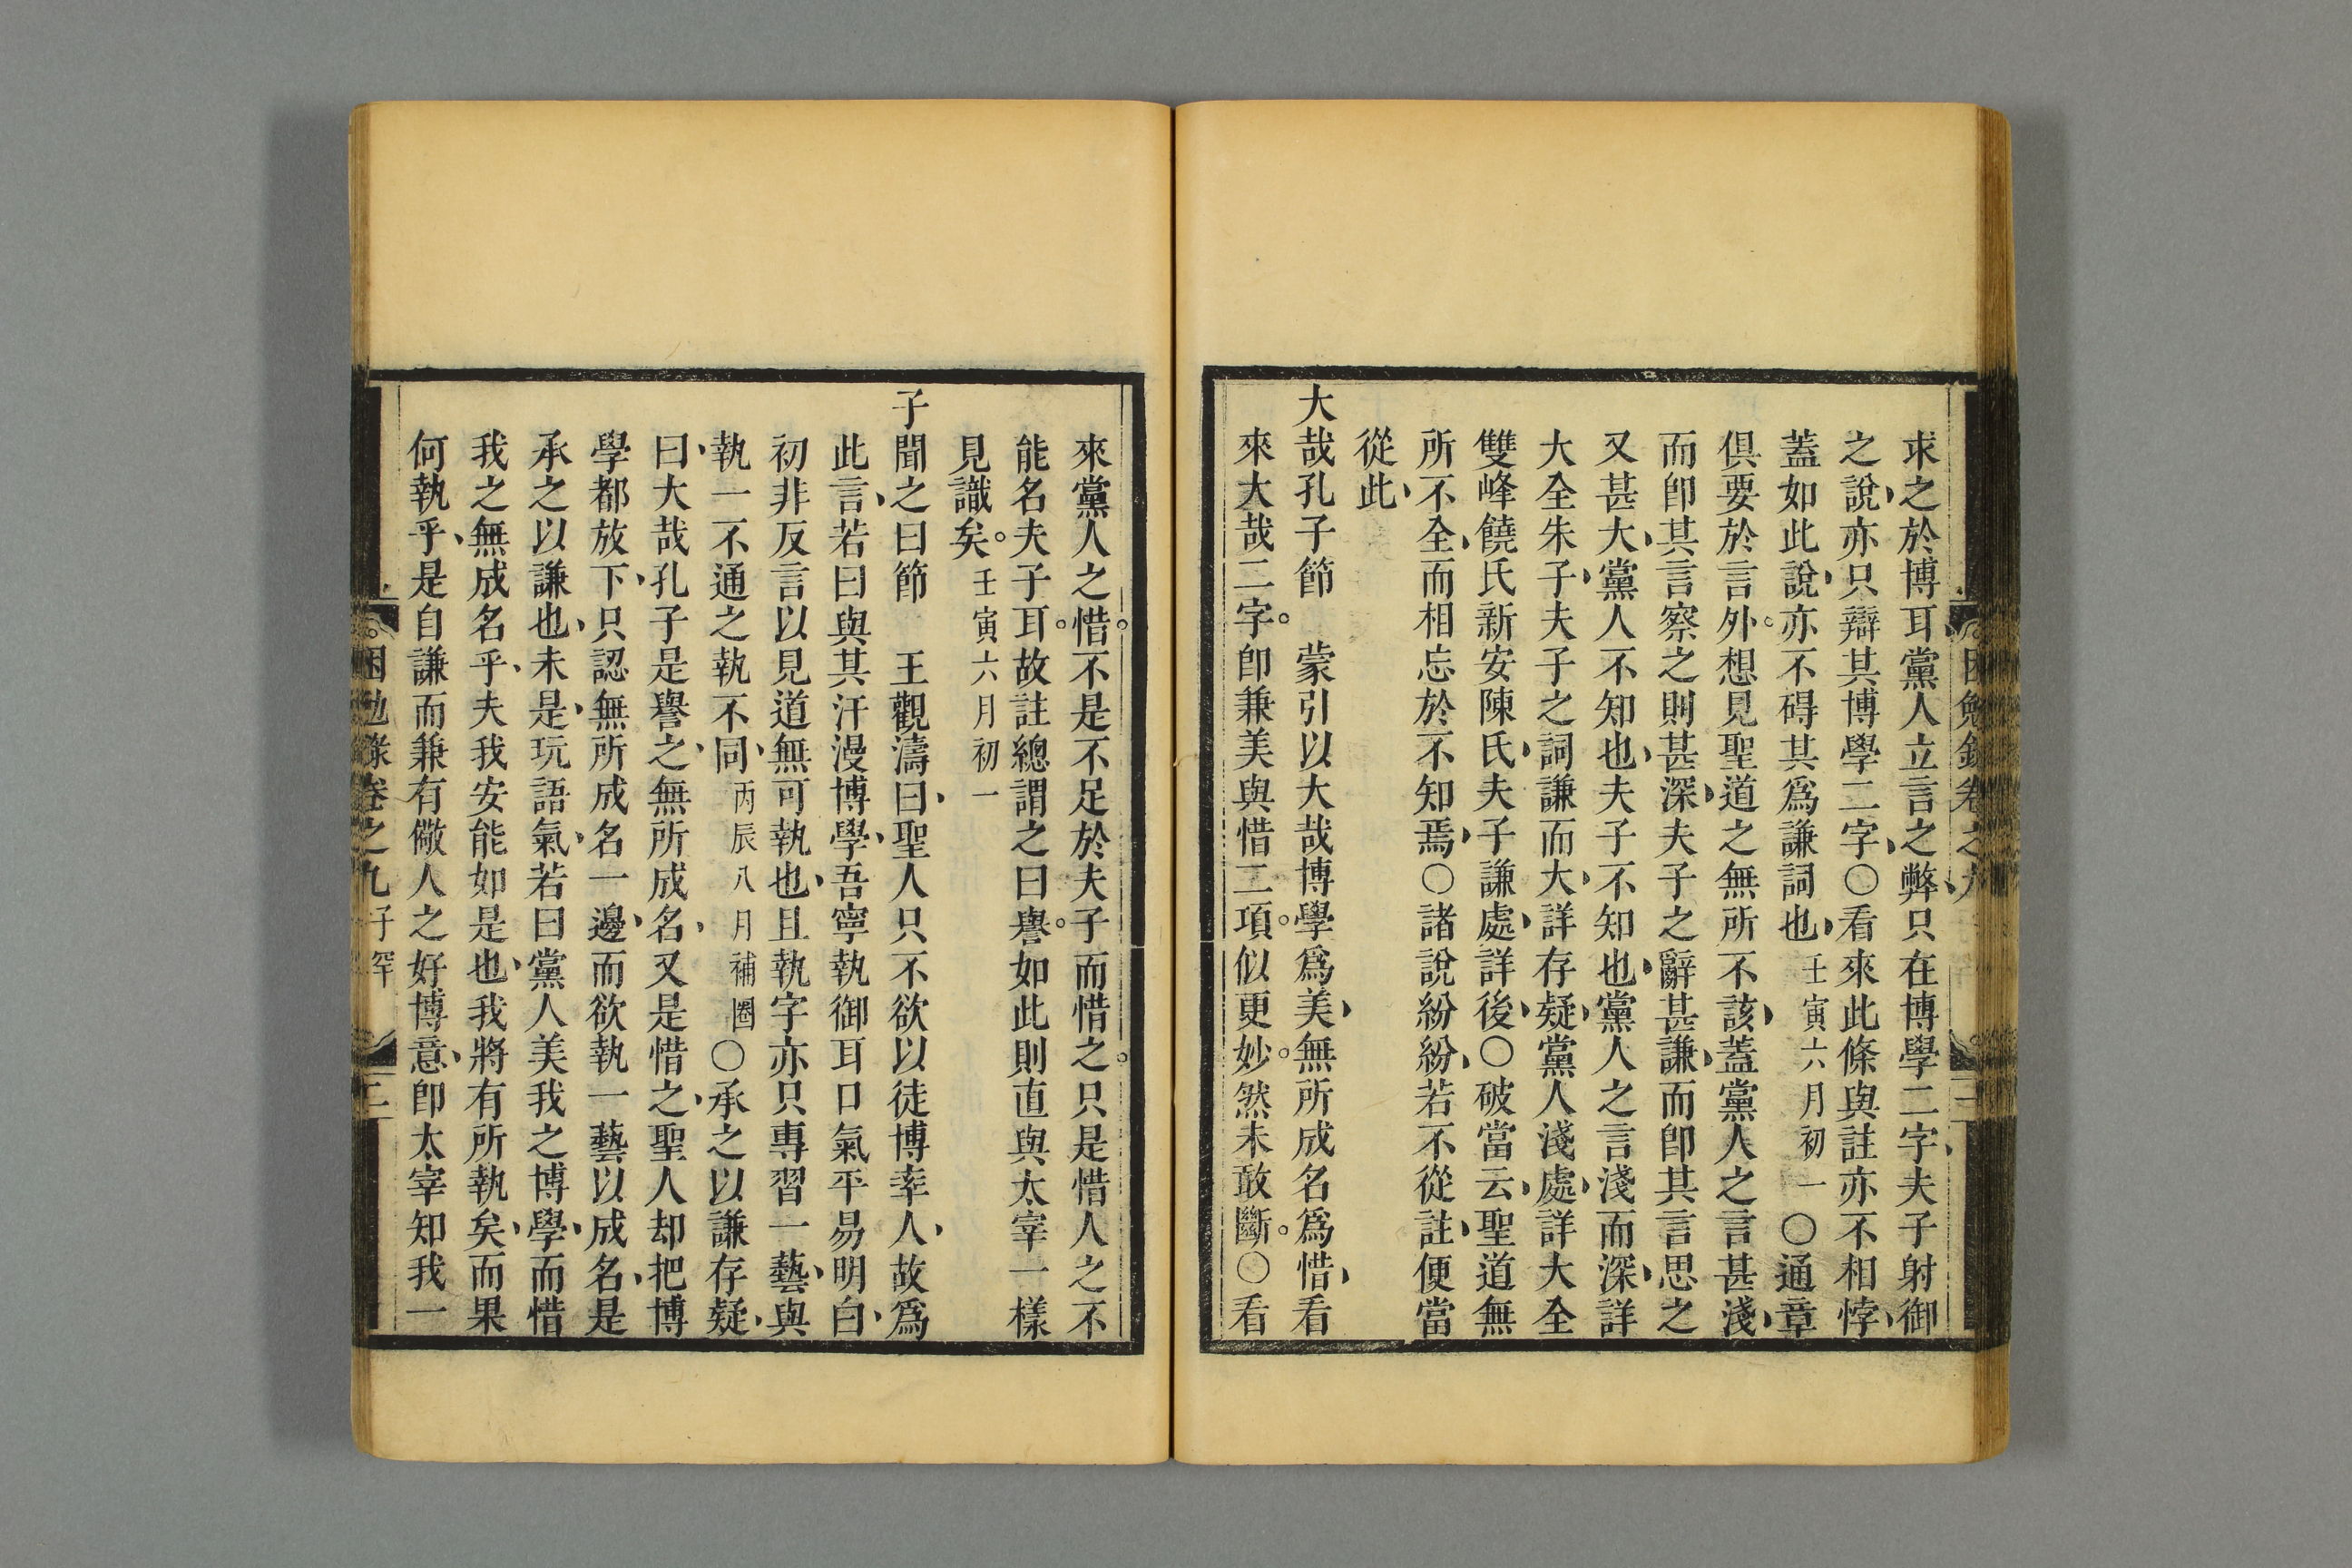 求之於博耳黨人立言之弊只在博學二字夫子射御
之說亦只辯其博學二字○看來此條與註亦不相悖
蓋如此說亦不碍其爲謙詞也壬寅六月初一○通章
俱要於言外想見聖道之無所不該蓋黨人之言甚淺
而卽其言察之則甚深夫子之辭甚謙而卽其言思之
又甚大黨人不知也夫子不知也黨人之言淺而深詳
大全朱子夫子之詞謙而大詳存疑黨人淺處詳大全
雙峰饒氏新安陳氏夫子謙處詳後○破當云聖道無
所不全而相忘於不知焉○諸說紛紛若不從註便當
從此
大哉孔子節 蒙引以大哉博學爲美無所成名爲惜看
來大哉二字卽兼美與惜二項似更妙然未敢斷○看
來黨人之惜不是不足於夫子而惜之只是惜人之不
能名夫子耳故註總謂之曰譽如此則直與太宰一樣
見識矣壬寅六月初一
子聞之曰節 王觀濤曰聖人只不欲以徒博率人故爲
此言若曰與其汗漫博學吾寧執御耳口氣平易明白
初非反言以見道無可執也且執字亦只專習一藝與
執一不通之執不同丙辰八月補圈○承之以謙存疑
曰大哉孔子是譽之無所成名又是惜之聖人却把博
學都放下只認無所成名一邊而欲執一藝以成名是
承之以謙也未是玩語氣若曰黨人美我之博學而惜
我之無成名乎夫我安能如是也我將有所執矣而果
何執乎是自謙而兼有儆人之好博意卽太宰知我一
困勉錄卷之九 子罕 二